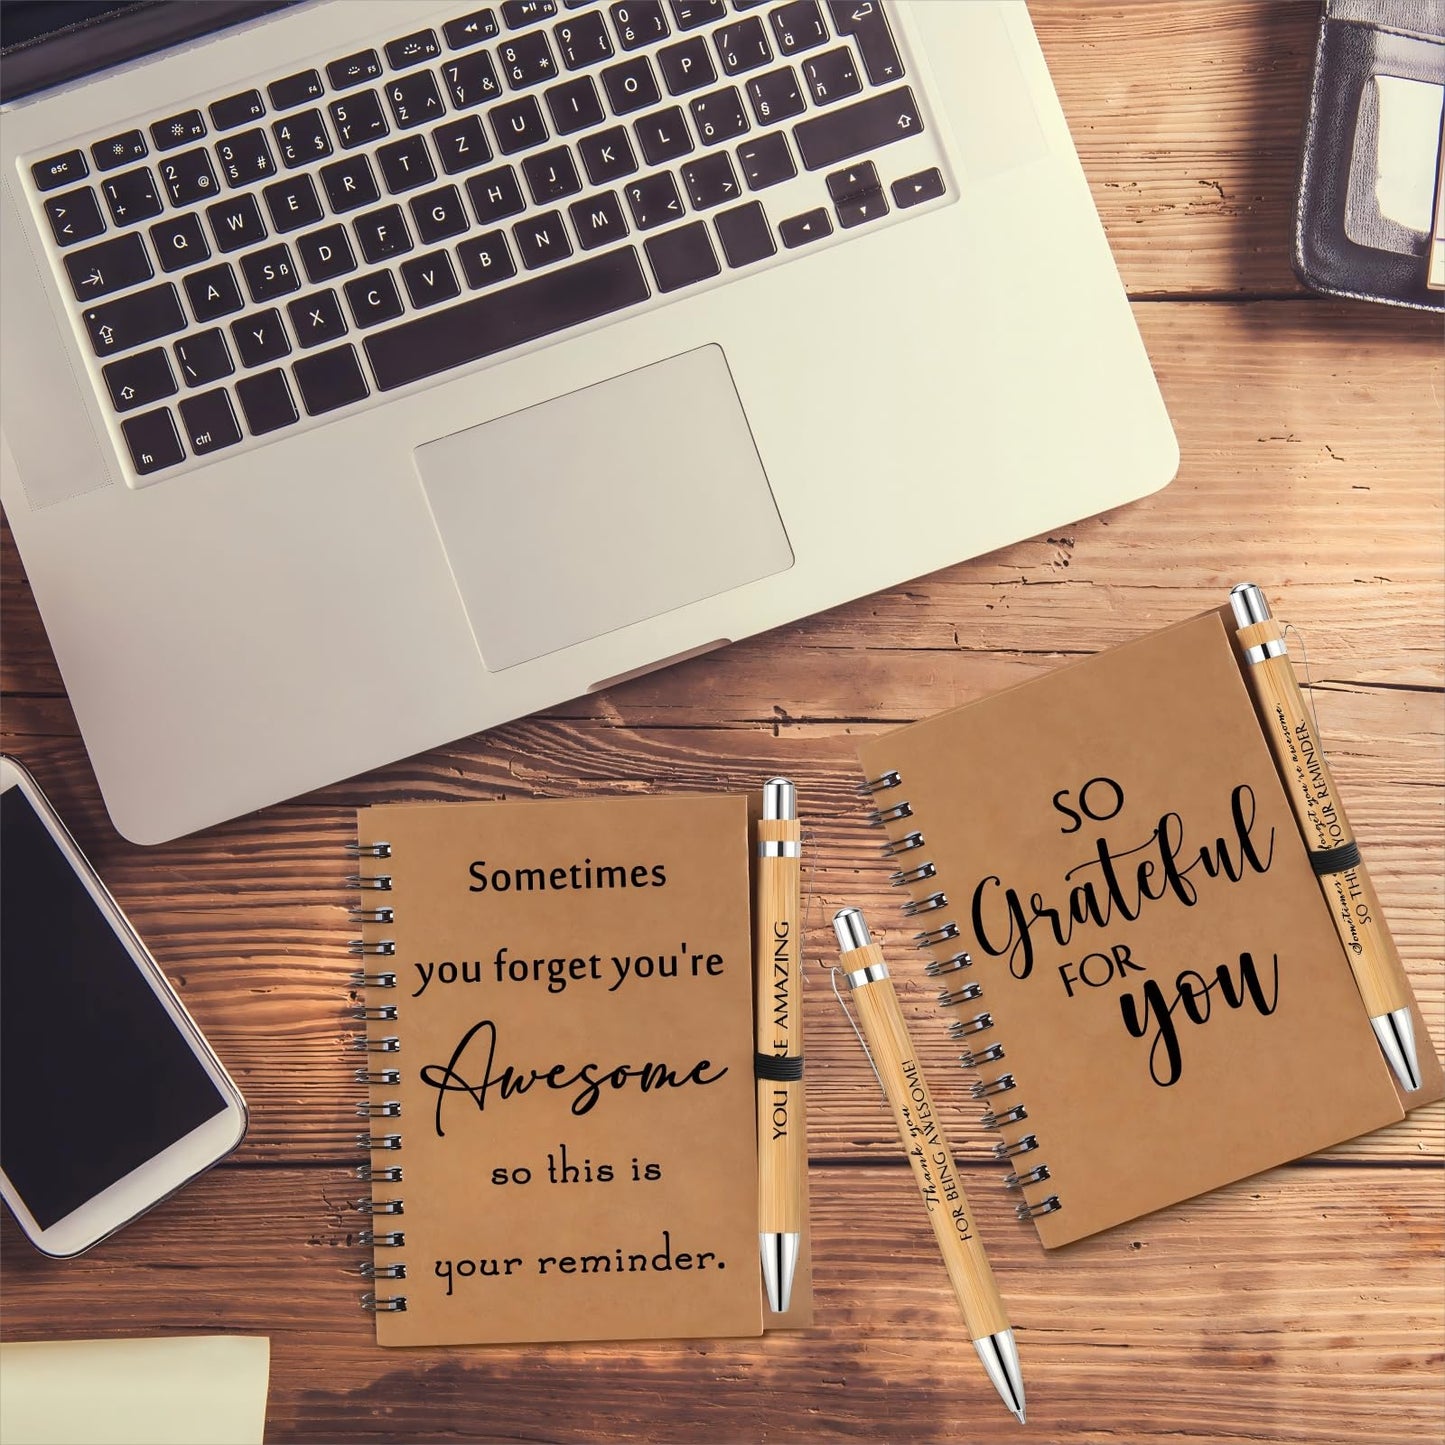 esc
F1
F2
F3
F4
F5
F6
F7
F8
Q W E R T Z U I O P
A S ß D F G H J K L
Y X C V B N M
fn
ctrl
Sometimes
you forget you're
Awesome
so this is
your reminder.
YOU RE AMAZING
Thank you
FOR BEING AWESOME!
SO
Grateful
FOR
you
Sometimes forget you're awesome,
SO THI YOUR REMINDER.